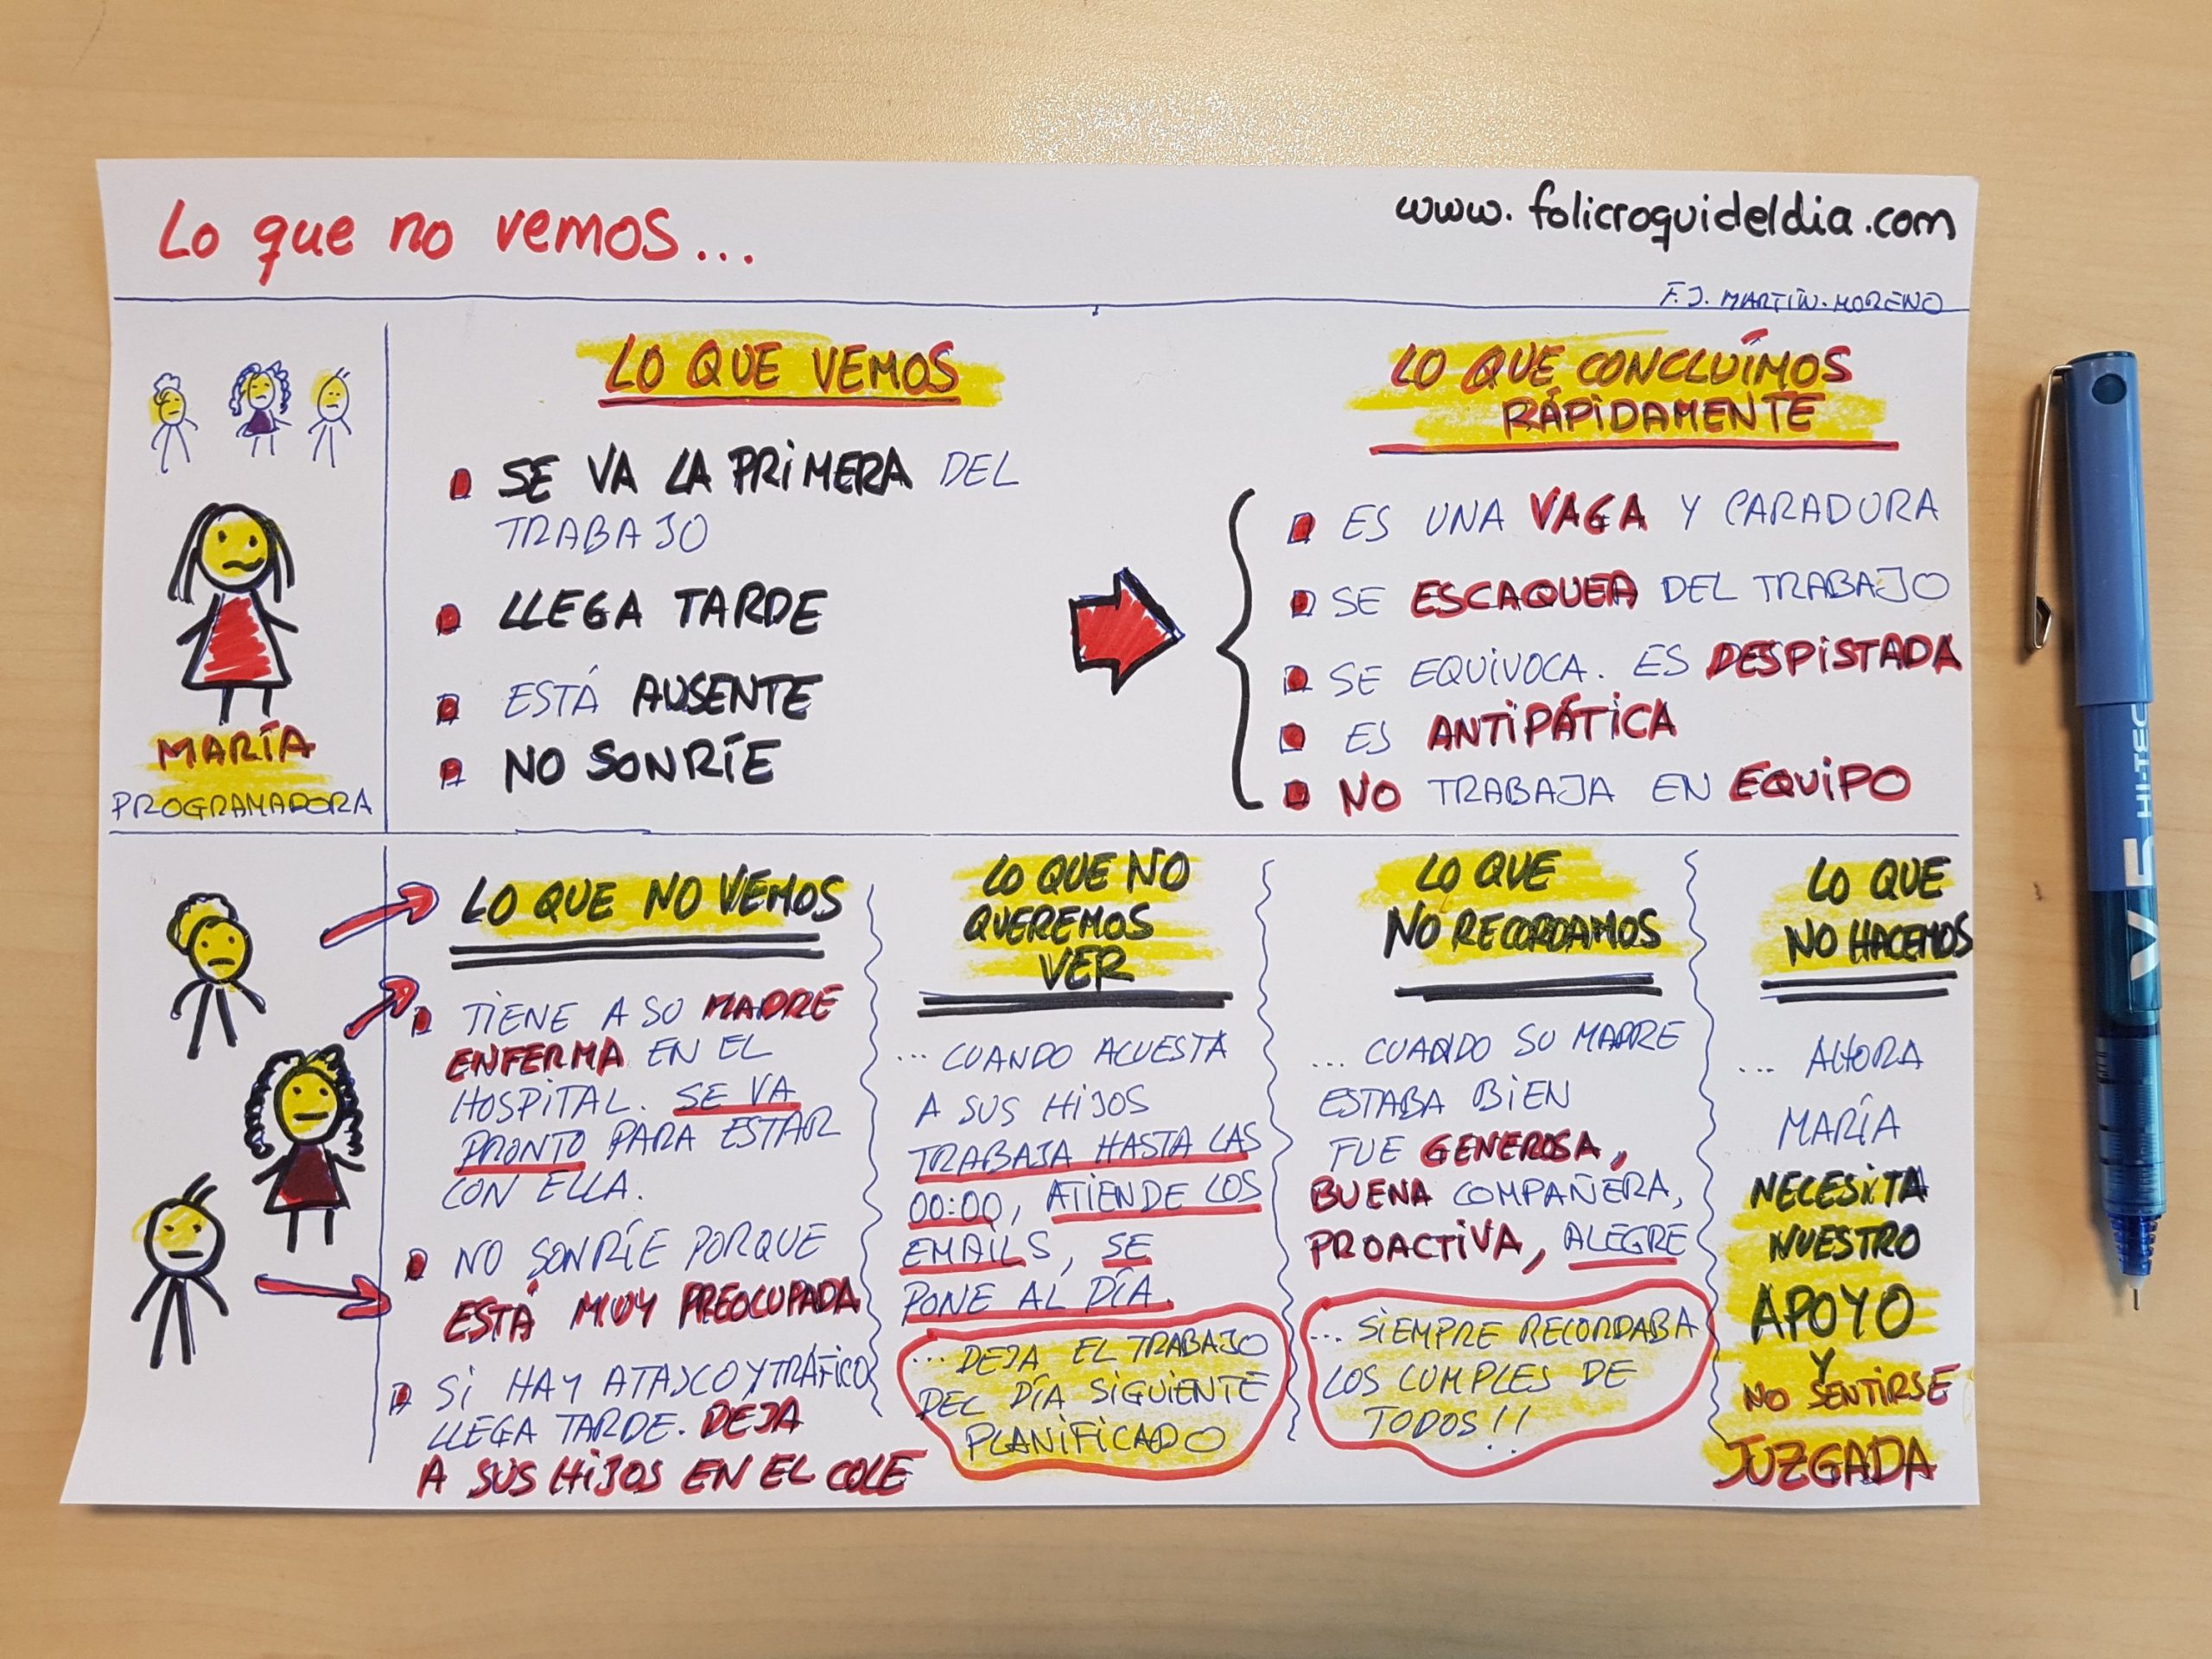 Lo que no vemos...
www.folicroquideldia.com
F.J. MARTÍN-MORENO
LO QUE VEMOS
SE VA LA PRIMERA DEL
TRABAJO
LLEGA TARDE
ESTÁ AUSENTE
NO SONRÍE
LO QUE CONCLUÍMOS
RÁPIDAMENTE
ES UNA VAGA Y CARADURA
SE ESCAQUEA DEL TRABAJO
SE EQUIVOCA. ES DESPISTADA
ES ANTIPÁTICA
NO TRABAJA EN EQUIPO
MARÍA
PROGRAMADORA
LO QUE NO VEMOS
TIENE A SU MADRE
ENFERMA EN EL
HOSPITAL. SE VA
PRONTO PARA ESTAR
CON ELLA.
NO SONRÍE PORQUE
ESTÁ MUY PREOCUPADA
SI HAY ATASCO Y TRÁFICO
LLEGA TARDE. DEJA
A SUS HIJOS EN EL COLE
LO QUE NO
QUEREMOS
VER
... CUANDO ACUESTA
A SUS HIJOS
TRABAJA HASTA LAS
00:00, ATIENDE LOS
EMAILS, SE
PONE AL DÍA.
... DEJA EL TRABAJO
DEL DÍA SIGUIENTE
PLANIFICADO
LO QUE
NO RECORDAMOS
... CUANDO SU MADRE
ESTABA BIEN
FUE GENEROSA,
BUENA COMPAÑERA,
PROACTIVA, ALEGRE
... SIEMPRE RECORDABA
LOS CUMPLES DE
TODOS!!
LO QUE
NO HACEMOS
... AHORA
MARÍA
NECESITA
NUESTRO
APOYO
Y
NO SENTIRSE
JUZGADA
V5 HI-TEC